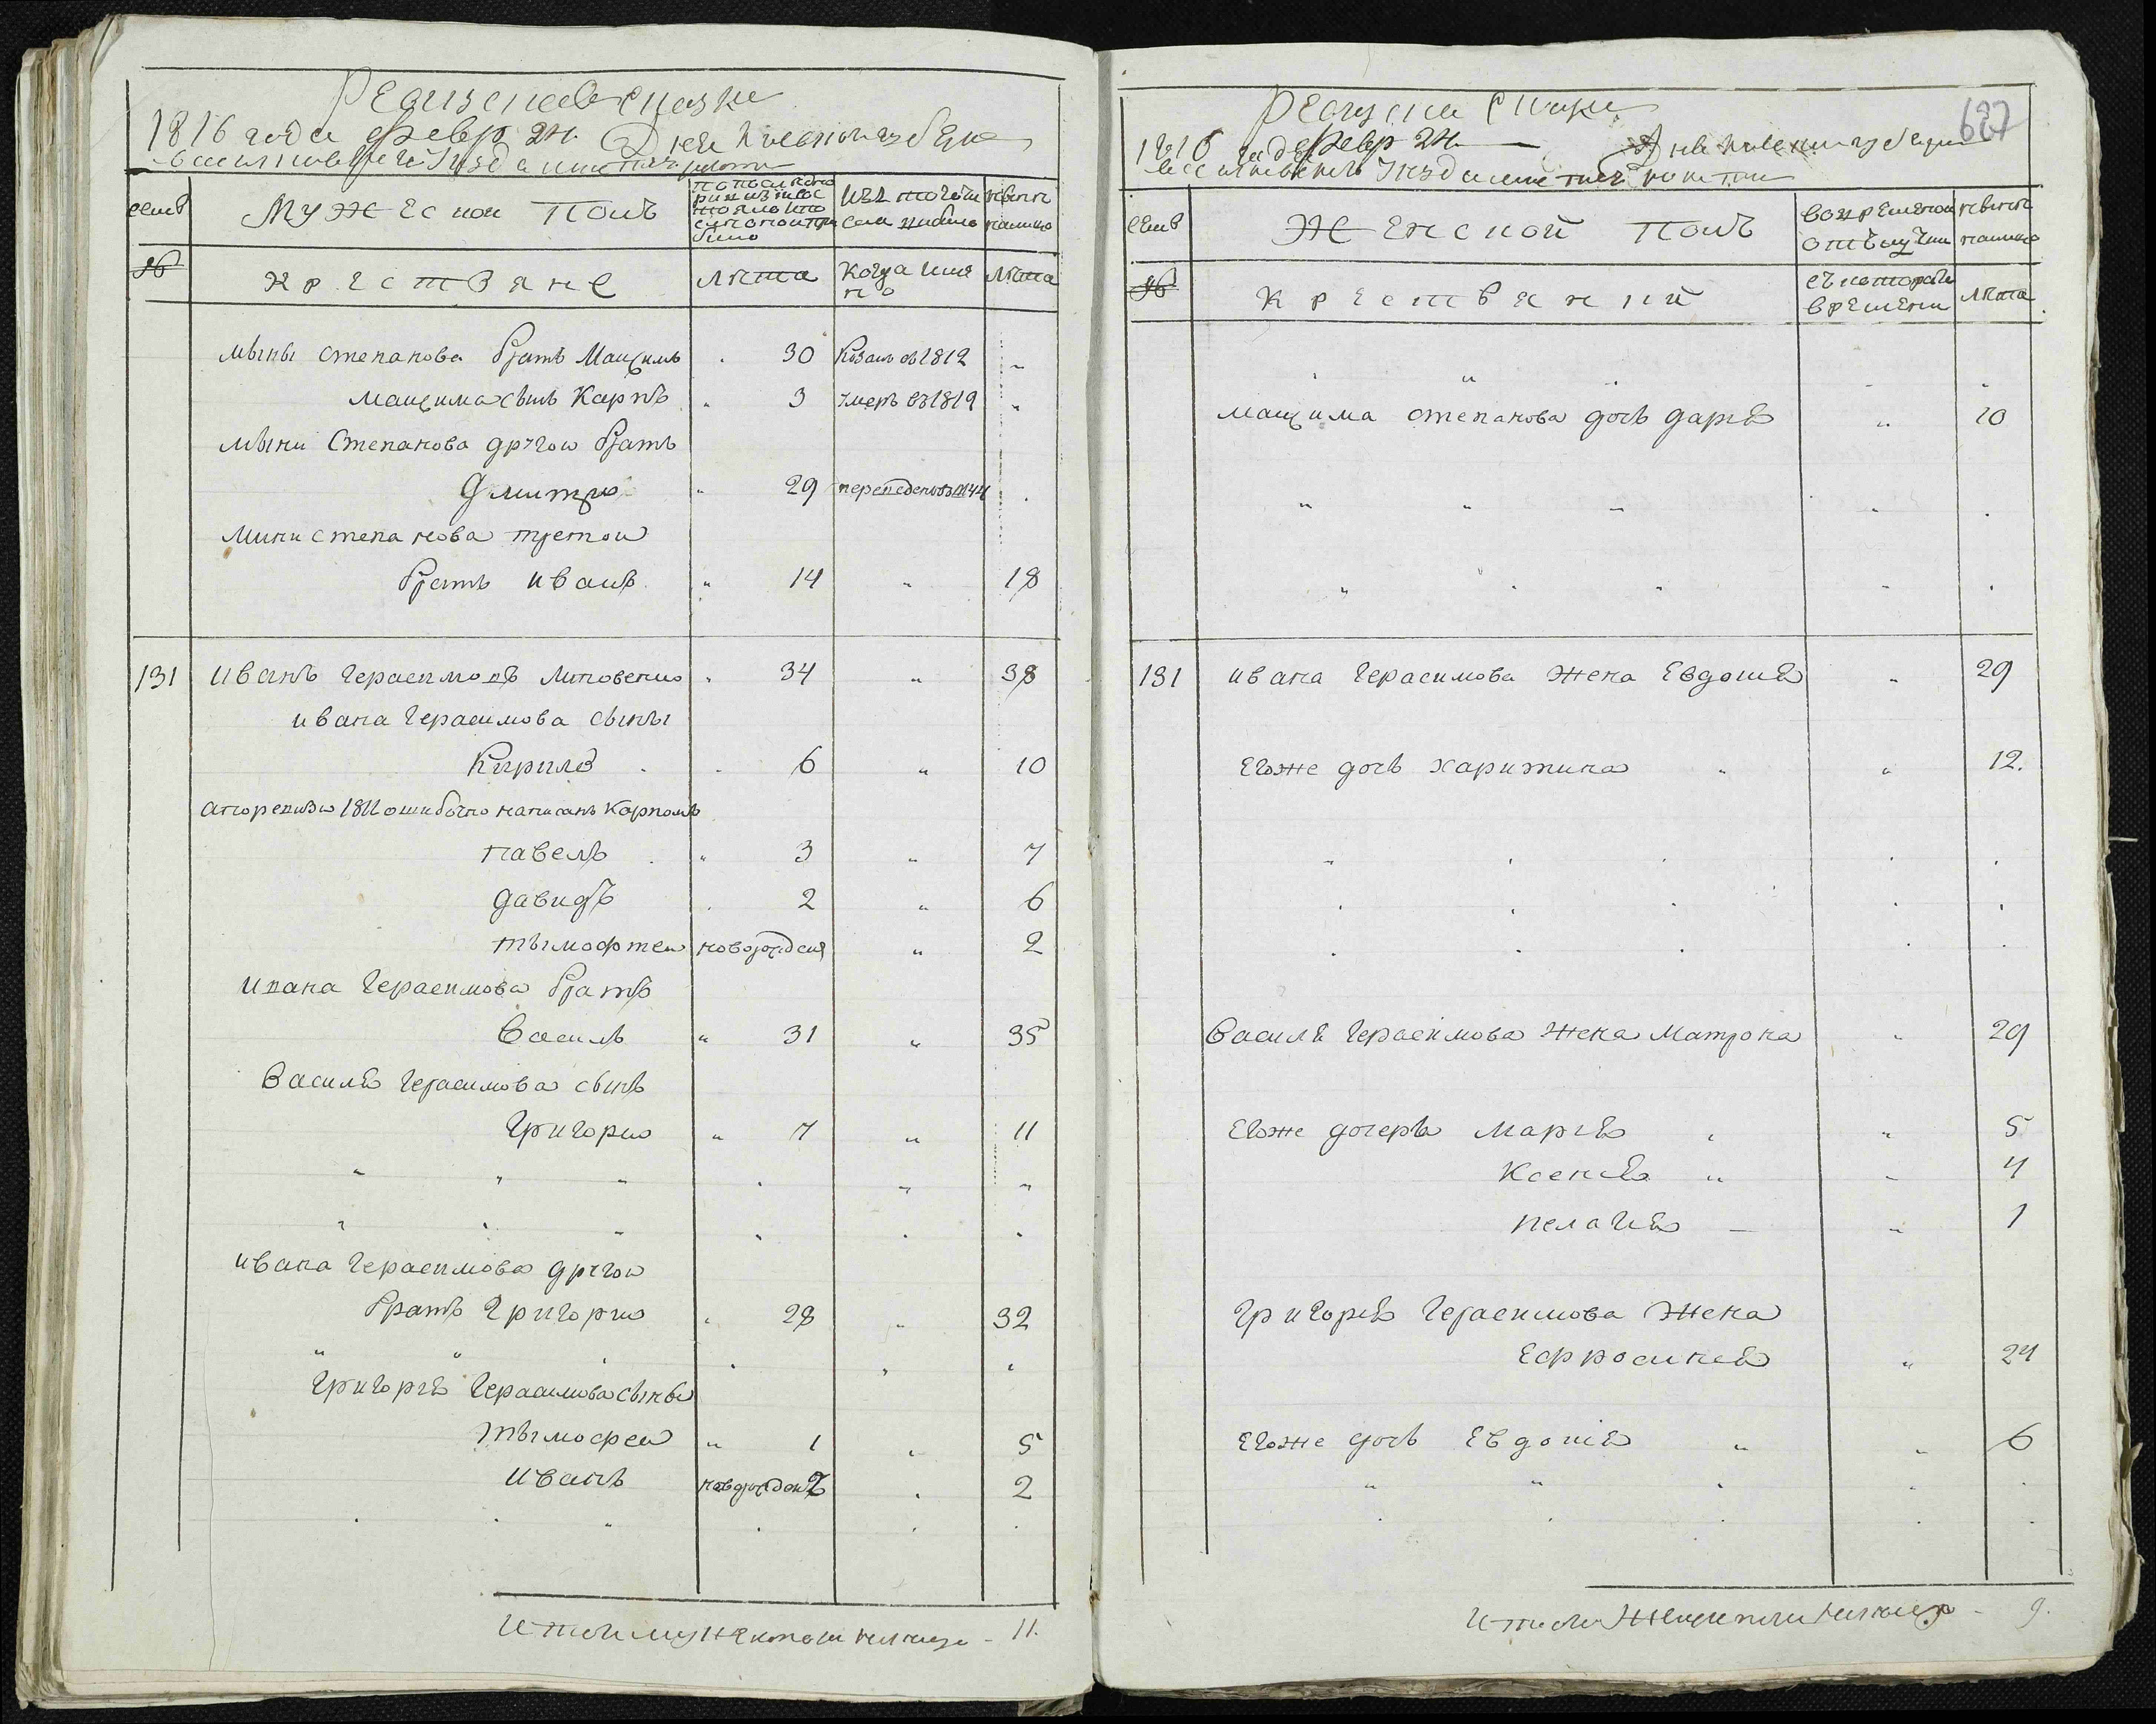 Ревизская сказка
1816 года Февр 24 Дня Киевской губернии
Васильковскаго Уезда
Семьи
Мужеской Полъ
по последней ревизии состояло и после оной прибыло
изъ того числа выбыло
Ныне на лицо
№
Крестьяне
Лета
Когда имянно
Лета
Мыны Степанова братъ Мацимъ " 30 Казакъ въ 1812 "
Мацима сынъ Карпъ " 3 Умеръ въ 1812 "
Мыни Степанова другои братъ
Дмитро " 29 "
Мини Степанова третои
братъ Иванъ " 14 " 18
131 Иванъ Герасимовъ Литовенко " 34 " 38
Ивана Герасимова сыны
Кирило " 6 " 10
а по ревизи 1811 ошибочно написанъ Карпомъ
Павелъ " 3 " 7
Давидъ " 2 " 6
Тымофтеи новорожденъ " 2
Ивана Герасимова братъ
Василь " 31 " 35
Василя Герасимова сынъ
Григорио " 7 " 11
Ивана Герасимова другои
братъ Григорио " 28 " 32
Григоря Герасимова сыны
Тымофеи " 1 " 5
Иванъ новорожденъ " 2
Итого мужеска полу на лицо - 11.
Ревизская Сказка
627
1816 года Февр 24 Дня Киевской губернии
Васильковскаго Уезда
Семьи
Женской Полъ
Во временной отлучки
Ныне на лицо
№
Крестьянки
съ котораго времени
Лета
Мацима Степанова дочь Даря " 10
131 Ивана Герасимова Жена Евдокия " 29
Егоже дочь Харитина " " 12.
Василя Герасимова Жена Матрона " 29
Егоже дочеры Мария " " 5
Ксения " " 4
Пелагия " 1
Григория Герасимова Жена
Ефросиния " 24
Егоже дочь Евдокия " " 6
Итого Женска полу на лицо - 9.